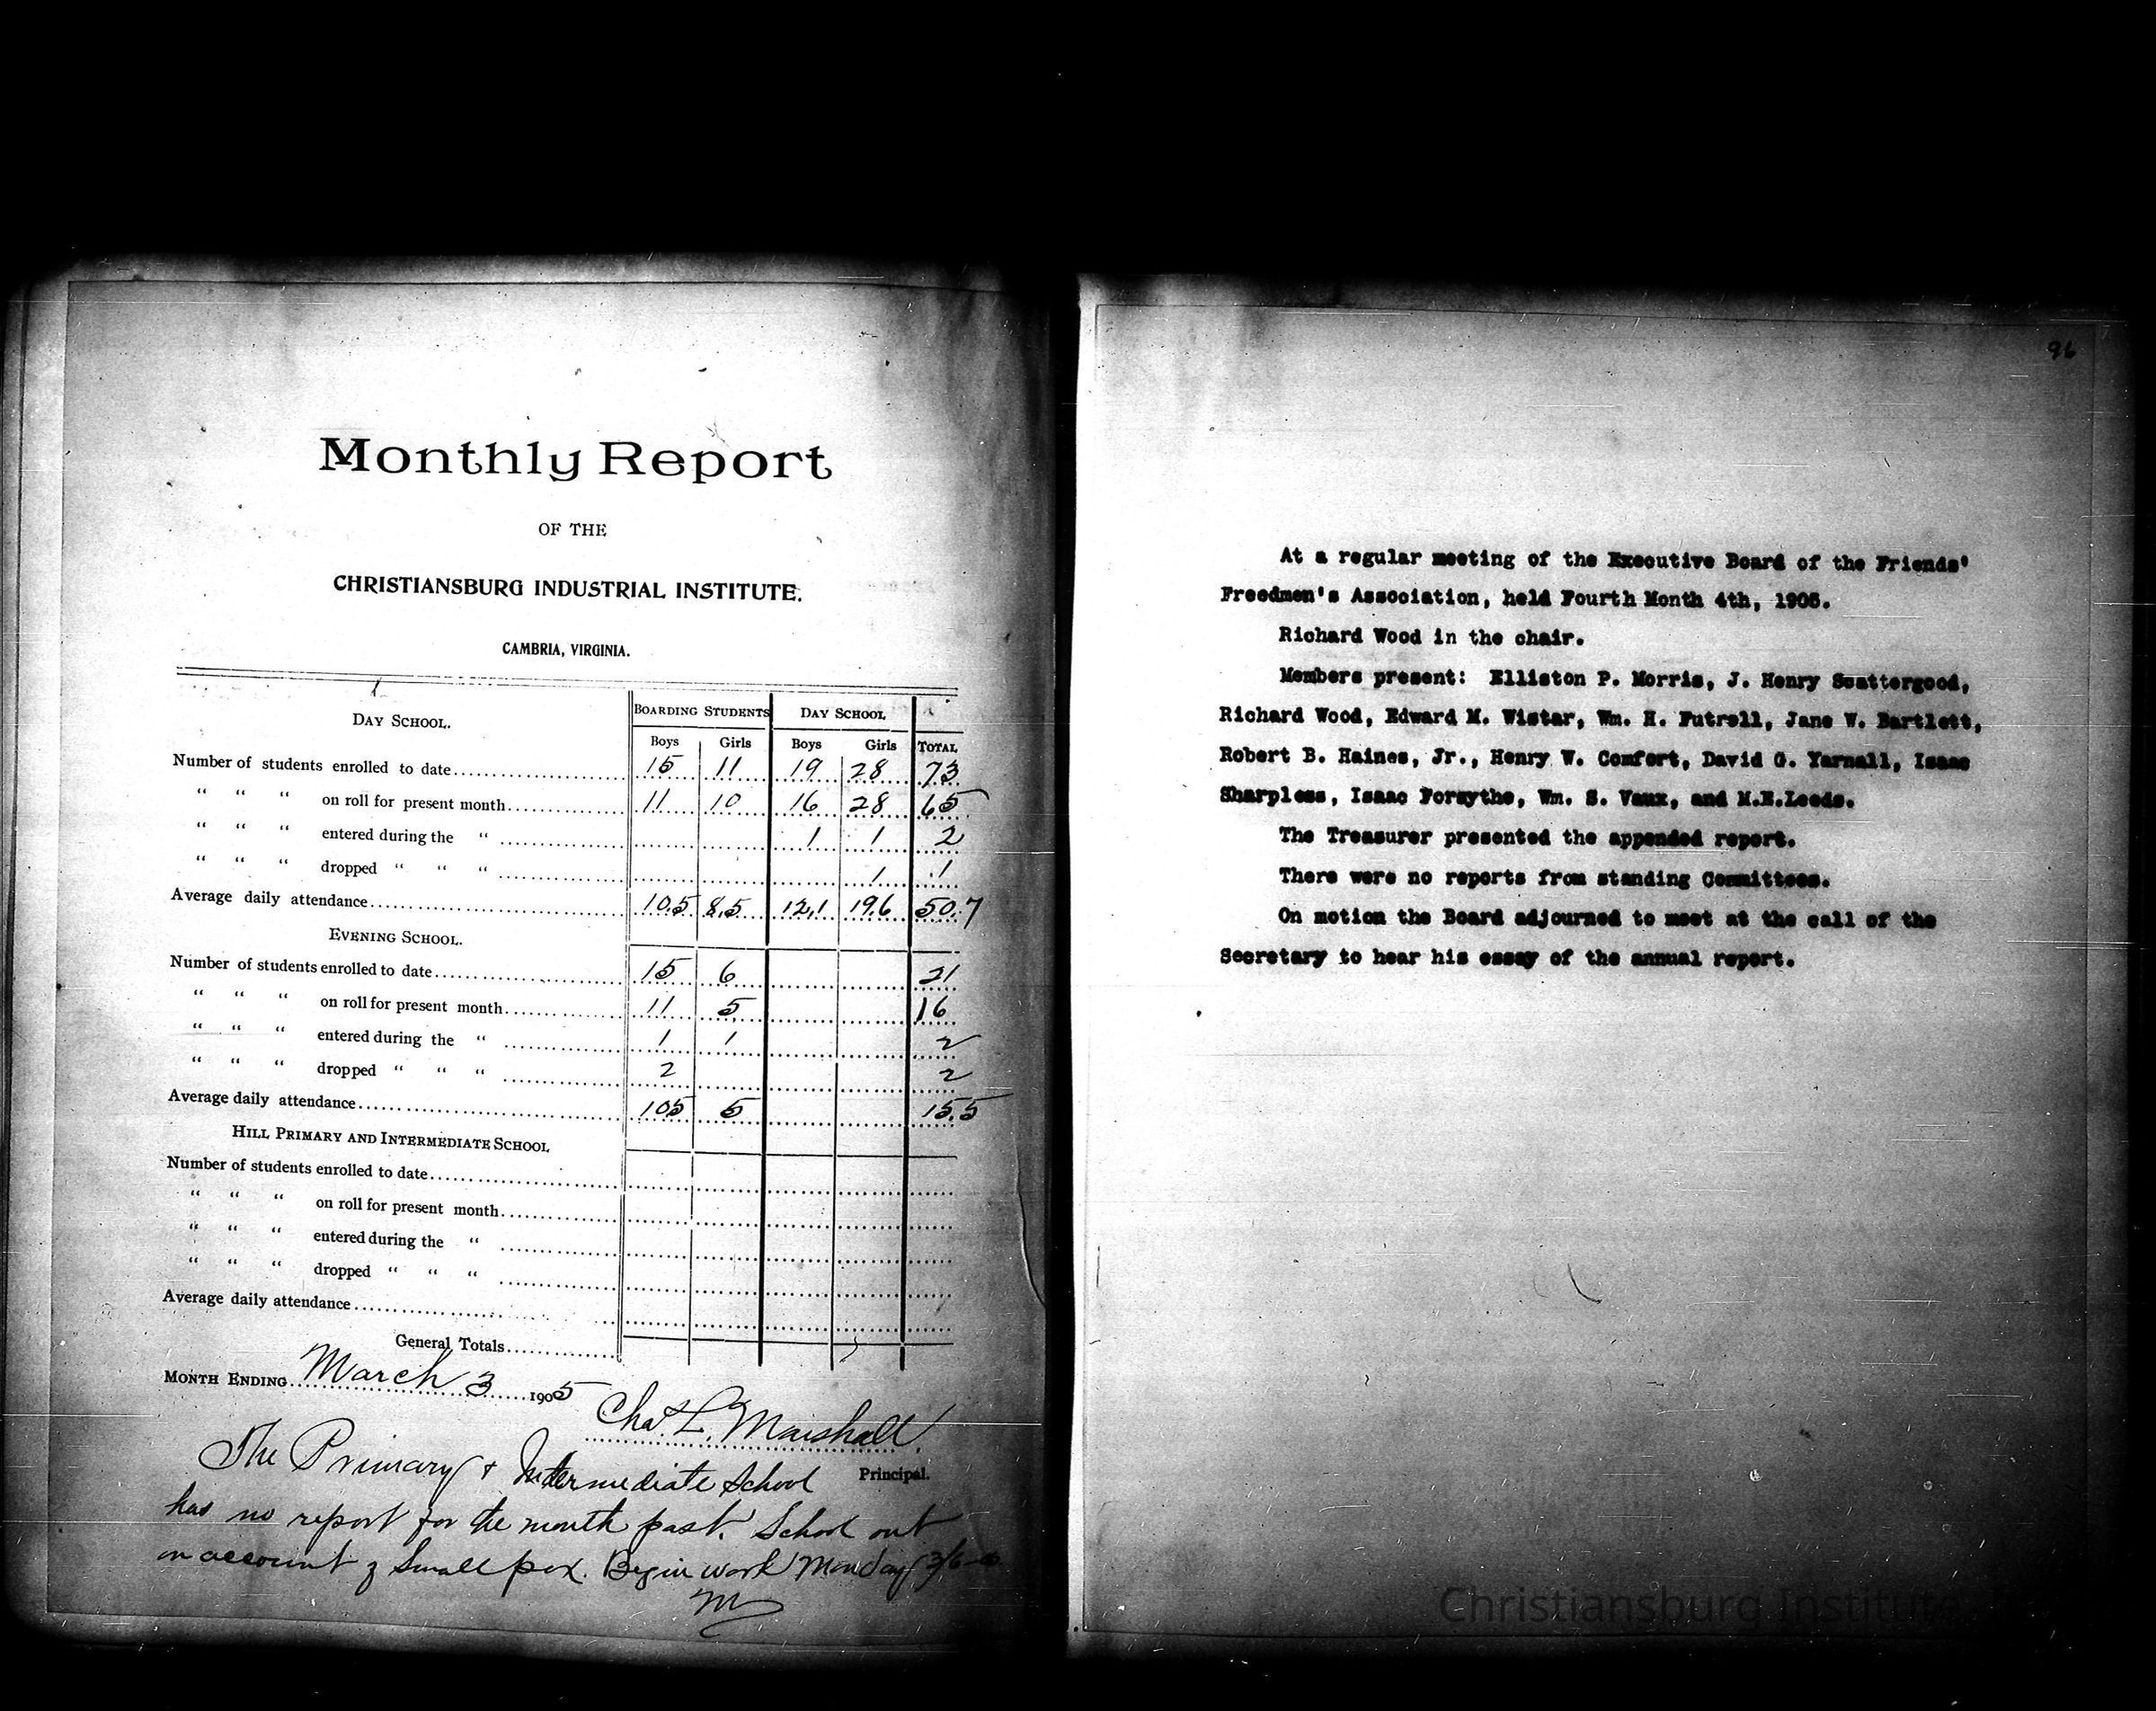 Monthly Report
OF THE
CHRISTIANSBURG INDUSTRIAL INSTITUTE.
CAMBRIA, VIRGINIA.
DAY SCHOOL. BOARDING STUDENTS DAY SCHOOL
Boys Girls Boys Girls TOTAL
Number of students enrolled to date 15 11 19 28 73
" " " on roll for present month 11 10 16 28 65
" " " entered during the " 1 1 2
" " " dropped " " " 1 1
Average daily attendance 10.5 8.5 12.1 19.6 50.7
EVENING SCHOOL.
Number of students enrolled to date 15 6 21
" " " on roll for present month 11 5 16
" " " entered during the " 1 1 2
" " " dropped " " " 2 2
Average daily attendance 10.5 5 15.5
HILL PRIMARY AND INTERMEDIATE SCHOOL
Number of students enrolled to date
" " " on roll for present month
" " " entered during the "
" " " dropped " " "
Average daily attendance
General Totals
MONTH ENDING March 3 1905
Chas. L. Marshall.
Principal.
The Primary & Intermediate School
has no report for the month past. School out
on account of Small pox. Begin work Monday 3/6
M
96
At a regular meeting of the Executive Board of the Friends'
Freedmen's Association, held Fourth Month 4th, 1905.
Richard Wood in the chair.
Members present: Elliston P. Morris, J. Henry Scattergood,
Richard Wood, Edward M. Wistar, Wm. H. Futrell, Jane W. Bartlett,
Robert B. Haines, Jr., Henry W. Comfort, David G. Yarnall, Isaac
Sharpless, Isaac Forsythe, Wm. S. Vaux, and M.E.Leeds.
The Treasurer presented the appended report.
There were no reports from standing Committees.
On motion the Board adjourned to meet at the call of the
Secretary to hear his essay of the annual report.
Christiansburg Institute